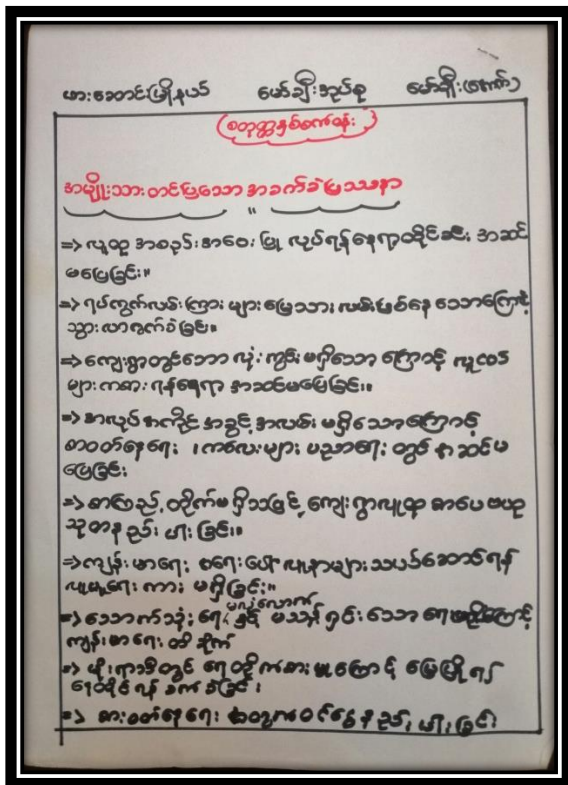 ဖားဆောင်းမြို့နယ် မော်ချီးအုပ်စု မော်ချီး(တောင်)
(စတုတ္ထနှစ်စကဝန်း)
အမျိုးသားတင်ပြသော အခက်ခဲပြဿနာ
=> လူထု အစည်းအဝေး ပြု လုပ်ရန်နေရာထိုင်ခင်း အဆင်
မပြေခြင်း။
=> ရပ်ကွက်လမ်းကြား များမြေသားလမ်းဖြစ်နေ သောကြောင့်
သွားလာခက်ခဲခြင်း။
=> ကျေးရွာတွင်ဘော လုံး ကွင်းမရှိသော ကြောင့် လူငယ်
များကစား ရန်နေရာ အဆင်မပြေခြင်း။
=> အလုပ်အကိုင် အခွင့် အလမ်း မရှိသောကြောင့်
စားဝတ်နေရေး ၊ကလေးများ ပညာရေး တွင် အဆင်မ
ပြေခြင်း
=> စာကြည့်တိုက်မရှိသဖြင့် ကျေးရွာလူထု စာပေ ဗဟု
သုတနည်း ပါး ခြင်း။
=> ကျန်းမာရေး စရေးပေါ် လူနာများသယ်ဆောင်ရန်
လူမှုရေး ကား မရှိခြင်း။
=> သောက်သုံးရေ မလုံလောက် နှင့် မသန့်ရှင်းသော ရေ ကြောင့်
ကျန်းမာရေး ထိခိုက်
=> မိုးရာသီတွင် ရေတိုက်စားမှုကြောင့် မြေပြို၍
နေထိုင်ရန် ခက်ခဲခြင်း၊
=> စားဝတ်နေရေး ဝင်ငွေနည်းပါးခြင်း